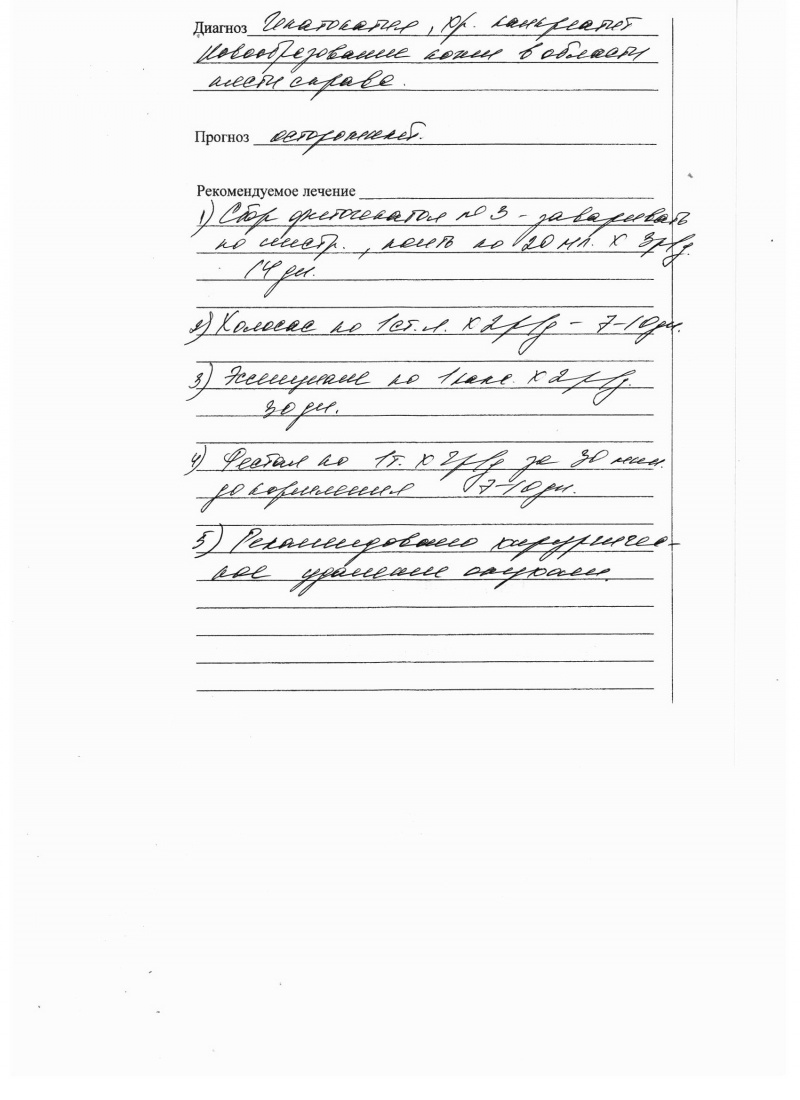 Диагноз Гепатопатия, хр. панкреатит
Новообразование кожи в области
кисти справа.
Прогноз осторожный.
Рекомендуемое лечение
1) Сбор фитогепатол №3 - заваривать
по инстр., поить по 20 мл. х 3р/д.
14 дн.
2) Холосас по 1ст.л. х 2р/д - 7-10дн.
3) по 1капс. х 2р/д.
30 дн.
4) Фестал по 1т. х 2р/д за 30 мин.
до кормления 7-10дн.
5) Рекомендовано хирургичес-
кое удаление опухоли.